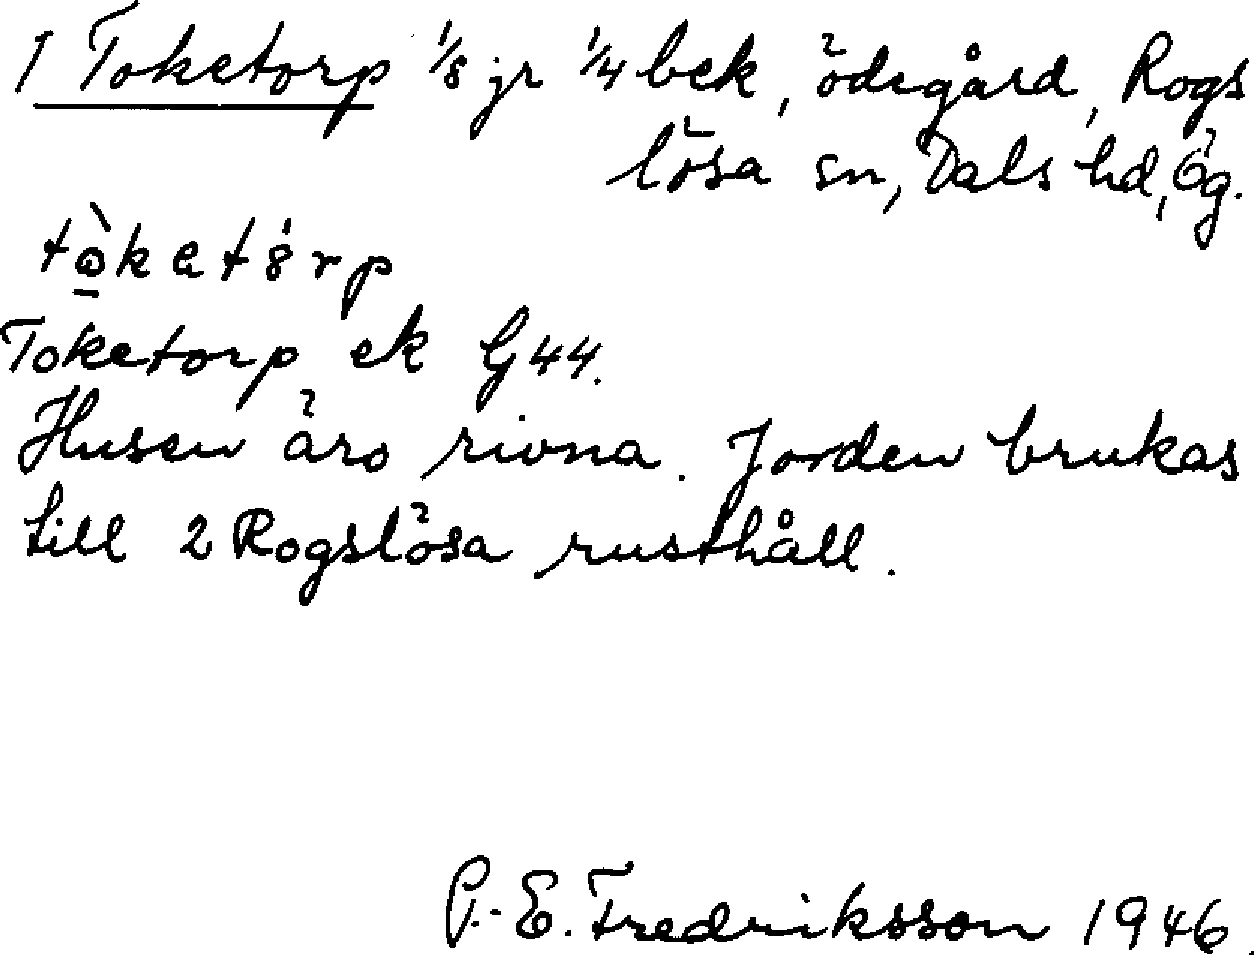 1 Toketorp 1/8 jr 1/4 bek, ödegård, Rogs
lösa sn, Dals hd, Ög.
tò̱ketȯrp
Toketorp ek G 44.
Husen äro rivna. Jorden brukas
till 2 Rogslösa rusthåll.
P.-E. Fredriksson 1946.